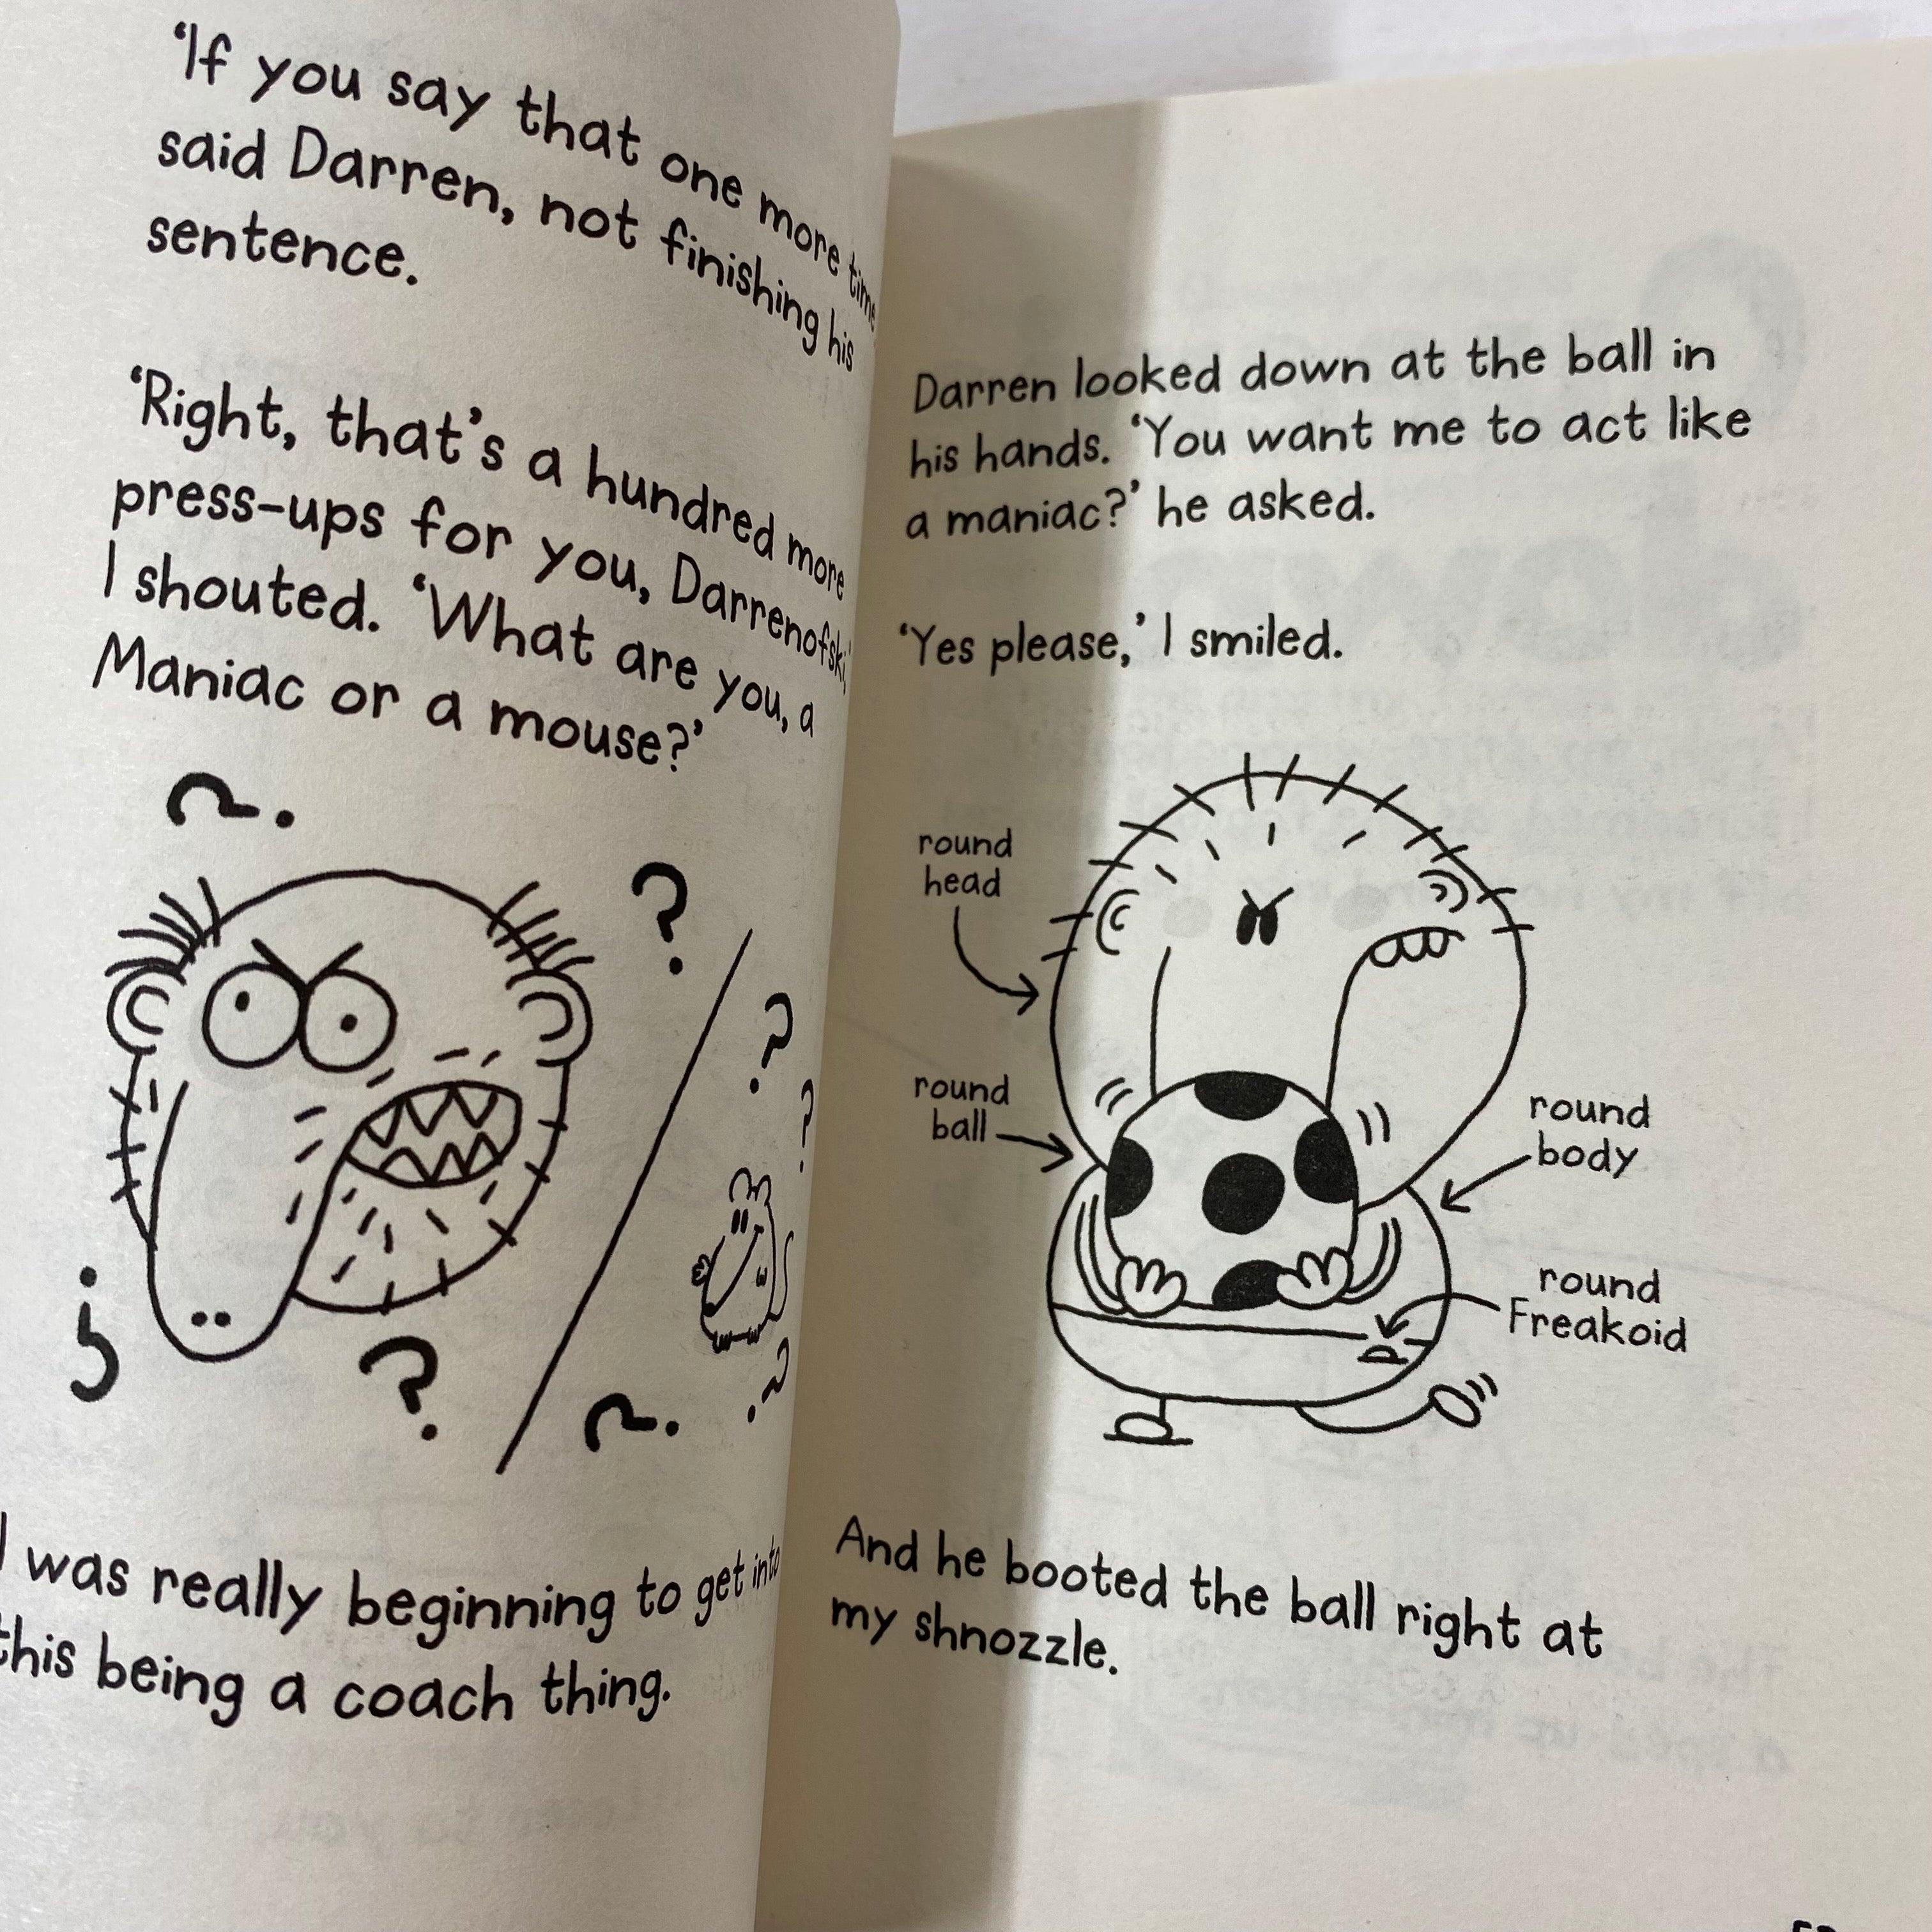 ‘If you say that one more time
said Darren, not finishing his
sentence.
‘Right, that’s a hundred more
press-ups for you, Darrenofski,’
I shouted. ‘What are you, a
Maniac or a mouse?’
?
?
?
?
?
?
?
?
I was really beginning to get into
this being a coach thing.
Darren looked down at the ball in
his hands. ‘You want me to act like
a maniac?’ he asked.
‘Yes please,’ I smiled.
round
head
round
ball
round
body
round
Freakoid
And he booted the ball right at
my shnozzle.